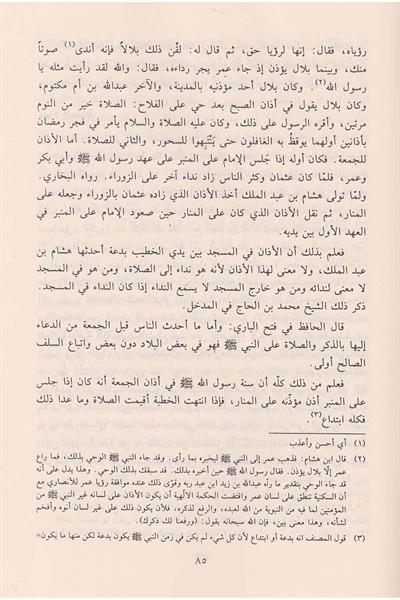 رؤياه، فقال: إنها لرؤيا حق، ثم قال له: لقّن ذلك بلالاً فإنه أندى(١) صوتاً
منك، وبينما بلال يؤذن إذ جاء عمر يجر رداءه، فقال: والله لقد رأيت مثله يا
رسول الله(٢). وكان بلال أحد مؤذنيه بالمدينة، والآخر عبدالله بن أم مكتوم،
وكان بلال يقول في أذان الصبح بعد حي على الفلاح: الصلاة خير من النوم
مرتين، وأقره الرسول على ذلك، وكان عليه الصلاة والسلام يأمر في فجر رمضان
بأذانين أولهما يوقظُ به الغافلون حتى يَتَنَّبهوا للسحور، والثاني للصلاة. أما الأذان
للجمعة. فكان أوله إذا جلس الإمام على المنبر على عهد رسول الله ﷺ وأبي بكر
وعمر، فلمّا كان عثمان وكثر الناس زاد نداء آخر على الزوراء. رواه البخاري.
ولمّا تولى هشام بن عبد الملك أخذ الأذان الذي زاده عثمان بالزوراء وجعله على
المنار، ثم نقل الأذان الذي كان على المنار حين صعود الإمام على المنبر في
العهد الأول بين يديه.
فعلم بذلك أن الأذان في المسجد بين يدي الخطيب بدعة أحدثها هشام بن
عبد الملك، ولا معنى لهذا الأذان لأنه هو نداء إلى الصلاة، ومن هو في المسجد
لا معنى لندائه ومن هو خارج المسجد لا يسمع النداء إذا كان النداء في المسجد.
ذكر ذلك الشيخ محمد بن الحاج في المدخل.
قال الحافظ في فتح الباري: وأما ما أحدث الناس قبل الجمعة من الدعاء
إليها بالذكر والصلاة على النبي ﷺ فهو في بعض البلاد دون بعض واتباع السلف
الصالح أولى.
فعلم من ذلك كلّه أن سنة رسول الله ﷺ في أذان الجمعة أنه كان إذا جلس
على المنبر أذن مؤذّنه على المنار، فإذا انتهت الخطبة أقيمت الصلاة وما عدا ذلك
فكله ابتداع(٣)
(١) أي أحسن وأعذب
(٢) قال ابن هشام: فذهب عمر إلى النبي ﷺ ليخبره بما رأى. وقد جاء النبي ﷺ الوحي بذلك، فما راع
عمر إلّا بلال يؤذن. فقال رسول الله ﷺ حين أخبره بذلك. قد سبقك بذلك الوحي. وهذا يدل على أنه
قد جاء الوحي بتقدير ما رآه عبدالله بن زيد ابن عبد ربه وقوّى ذلك عنده موافقة رؤيا عمر للأنصاري مع
أن السكينة تنطق على لسان عمر واقتضت الحكمة الالهية أن يكون الأذان على لسانه غير النبي ﷺ من
المؤمنين لما فيه من التنويه من الله لعبده، والرفع لذكره، فلأن يكون ذلك على غير لسان أنوه وأفخم
لشأنه، وهذا معنى بين، فإن الله سبحانه يقول: (ورفعنا لك ذكرك).
(٣) قول المصنف انه بدعة أو ابتداع لأن كل شيء لم يكن في زمن النبي ﷺ يكون بدعة لكن منها ما يكون=
٨٥